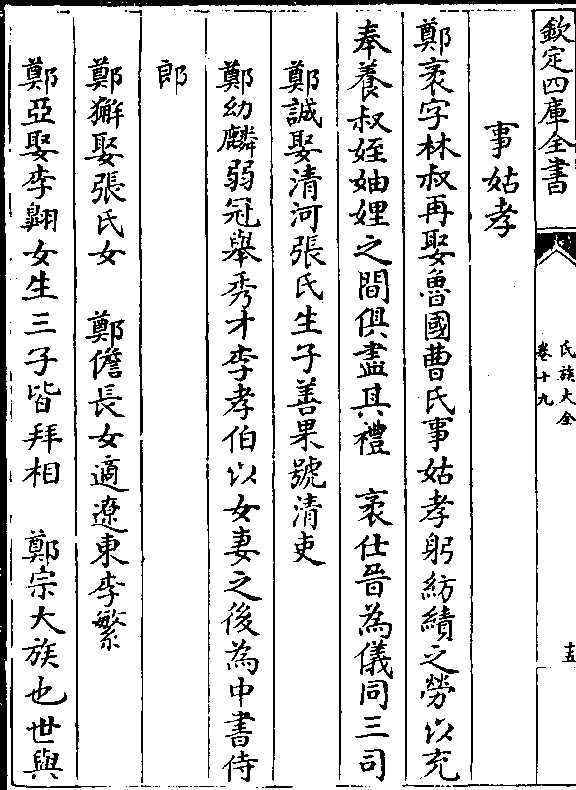 欽定四庫全書
氏族大全
卷十九
十五
事姑孝
鄭袤字林叔再娶魯國曹氏事姑孝躬紡績之勞以充
奉養叔姪妯娌之間俱盡其禮　袤仕晉為儀同三司
鄭誠娶清河張氏生子善果號清吏
鄭幼麟弱冠舉秀才李孝伯以女妻之後為中書侍
郎
鄭獬娶張氏女　鄭儋長女適遼東李繁
鄭亞娶李翺女生三子皆拜相　鄭宗大族也世與